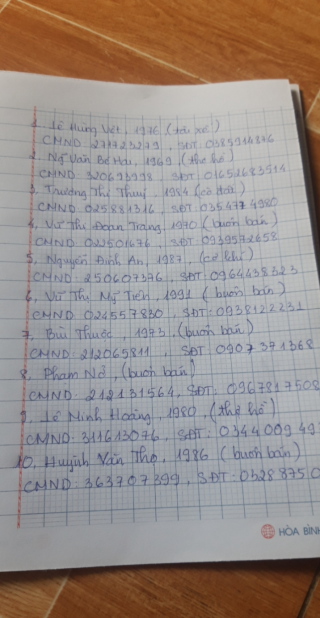 1. Lê Hùng Việt, 1976 (tài xế)
CMND 271723279, SĐT 0385916876
2. Ngô Văn Bé Hai, 1969 (thợ hồ)
CMND 320693998 SĐT 01652683514
3. Trương Thị Thuý, 1984 (cò đất)
CMND 025881316, SĐT 035477 4980
4. Vũ Thị Đoan Trang, 1970 (buôn bán)
CMND 022501676, SĐT 0939572658
5. Nguyễn Đình An, 1987 (cơ khí)
CMND: 250607376, SĐT: 0964438323
6. Vũ Thị Mỹ Tiên, 1991 (buôn bán)
CMND 024557830, SĐT: 0938122231
7. Bùi Thước, 1973 (buôn bán)
CMND: 212065811, SĐT: 0907 371368
8. Phạm Nở, (buôn bán)
CMND: 212131564, SĐT: 0967817508
9. Lê Minh Hoàng, 1980, (thợ hồ)
CMND: 311613076, SĐT: 0344 009 49
10. Huỳnh Văn Thọ, 1986 (buôn bán)
CMND: 363707399, SĐT: 0328875 0
HÒA BÌNH